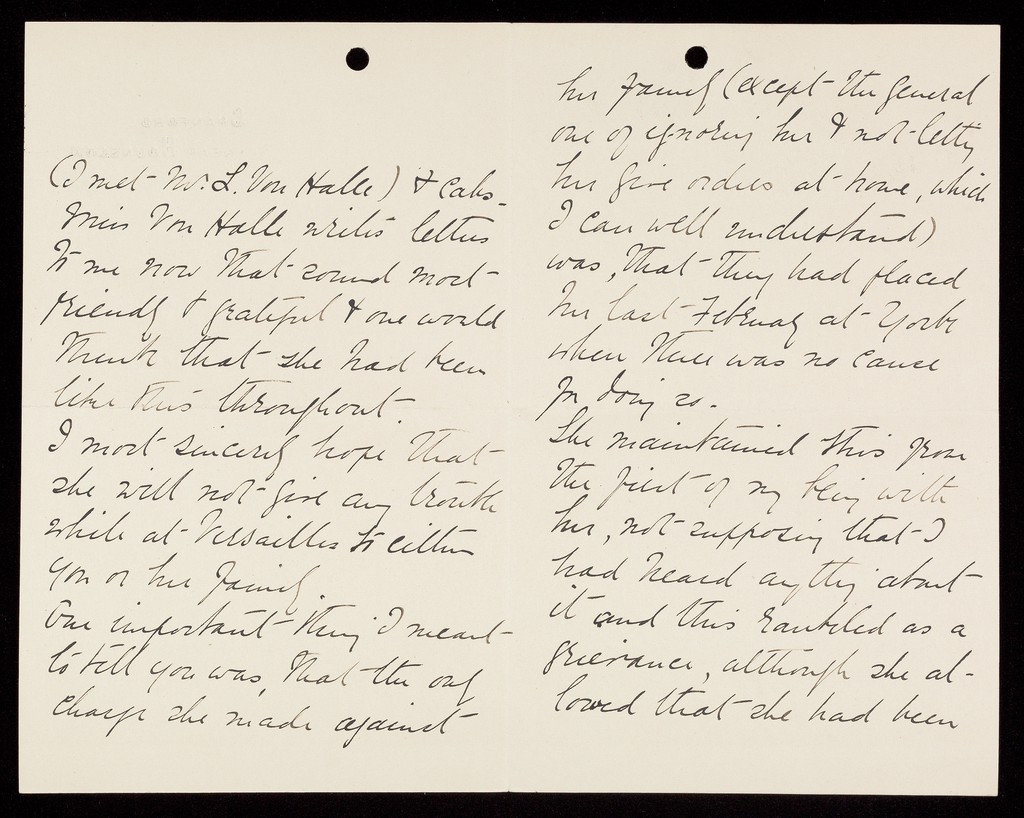 (I met Mr. L. Von Halle) & cabs.
Miss Von Halle writes letters
to me now that sound most
friendly & grateful & one would
think that she had been
like this throughout.
I most sincerely hope that
she will not give any trouble
while at Versailles to either
you or her family.
One important thing I meant
to tell you was, that the only
charge she made against
her family (except the general
one of ignoring her & not letting
her give orders at home, which
I can well understand)
was, that they had placed
her last February at York
when there was no cause
for doing so.
She maintained this from
the first of my being with
her, not supposing that I
had heard anything about
it and this rankled as a
grievance, although she al-
lowed that she had been